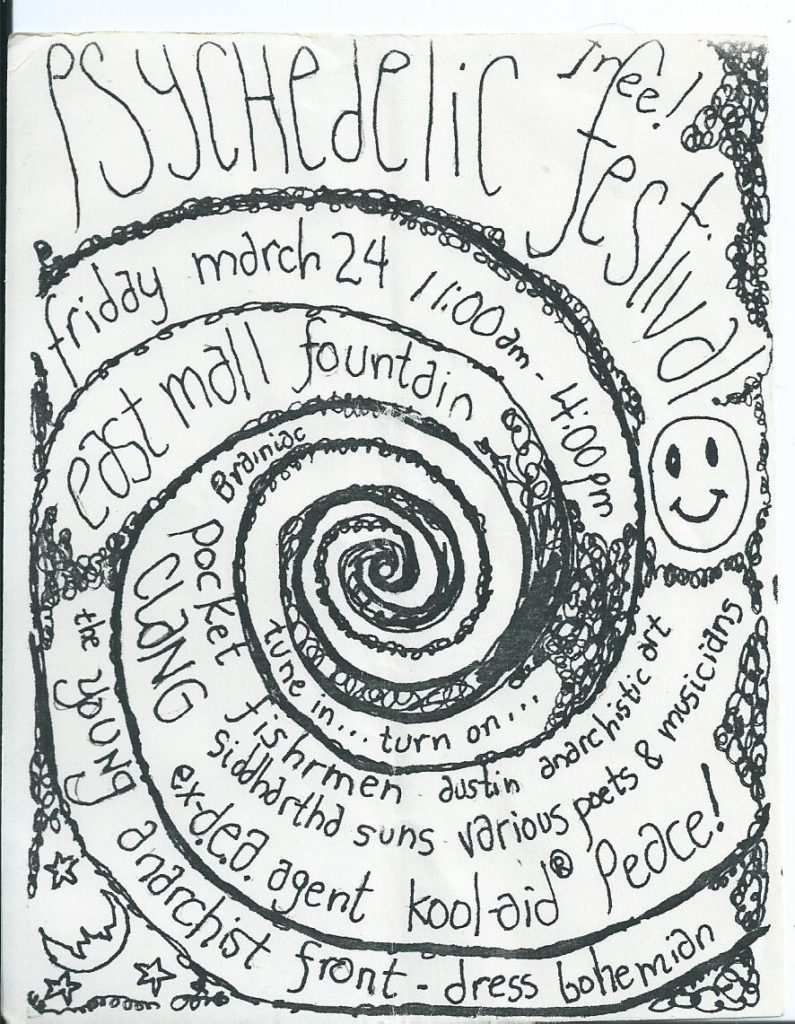 PSYCHedelic
free!
festival
friday march 24 11:00 am - 4:00 pm
east mall fountain
Brainiac
pocket fishrmen austin anarchistic art
CLANG siddhartha suns various poets & musicians
tune in... turn on...
ex-d.e.a. agent kool-aid® Peace!
the young anarchist front - dress bohemian